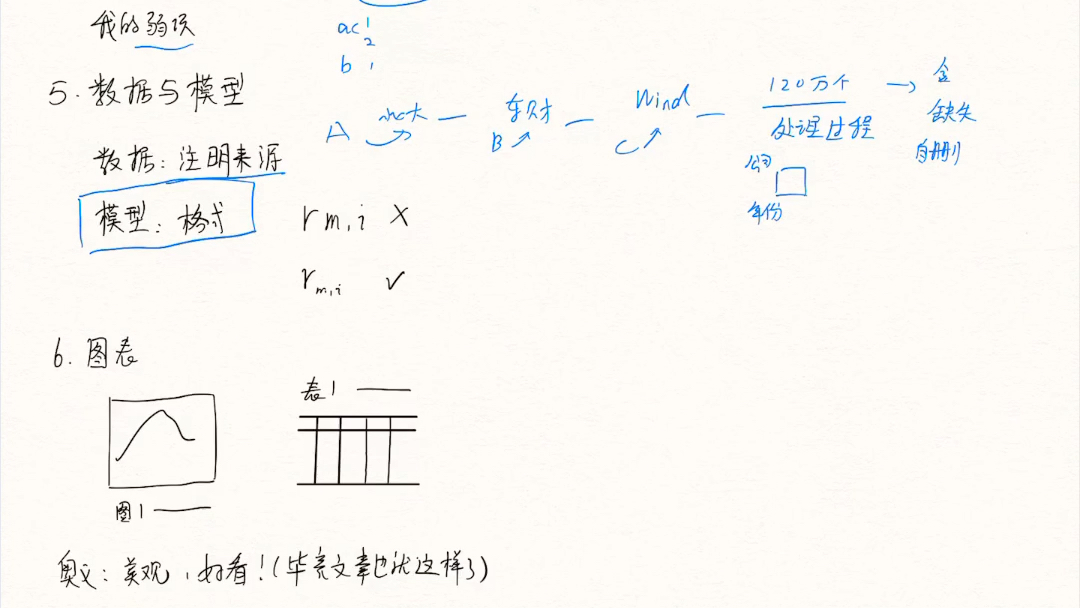 我的弱项
ac 1
2
b 1
5. 数据与模型
A — 东财 — Wind — 120万个 → 含
B C 处理过程 缺失
自删
数据: 注明来源
公司
年份
模型: 格式
rm,i ×
r m,i ✓
6. 图表
表1 ——
图1 ——
奥义: 美观, 好看! (毕竟文章也就这样了)